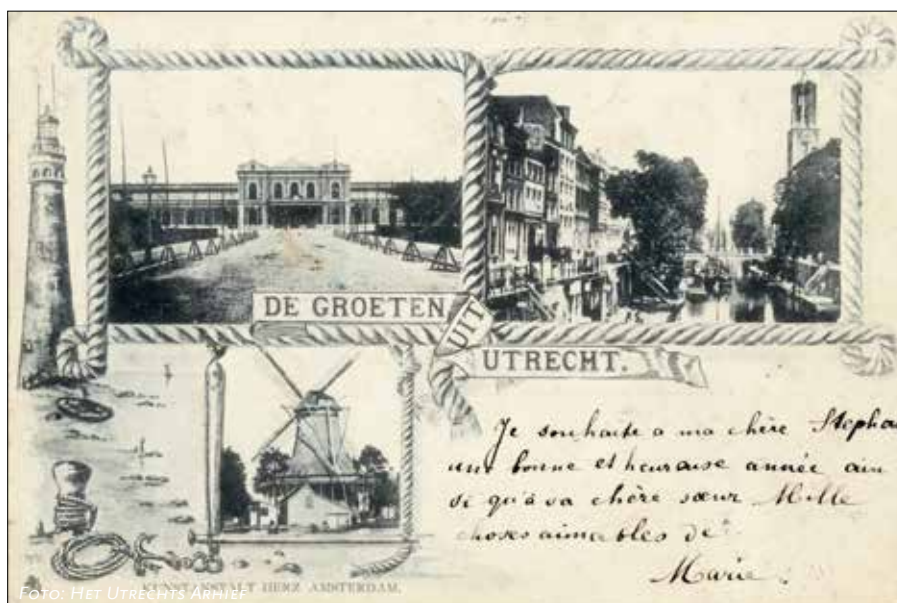 DE GROETEN
UIT
UTRECHT.
Je souhaite a ma chère Stepha
une bonne et heureuse année ain
si qu'à sa chère sœur Mille
choses aimables de
Marie.
KUNSTANSTALT HERZ AMSTERDAM.
FOTO: HET UTRECHTS ARHIEF